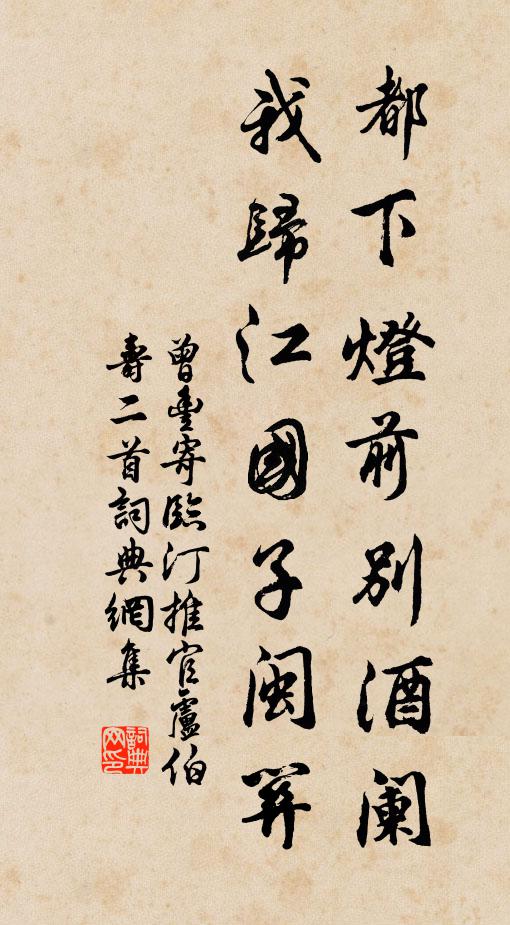 都下燈前別酒阑
我歸江國子閩關
曾豐寄臨汀推官盧伯
壽二首詞典網集
詞典网印